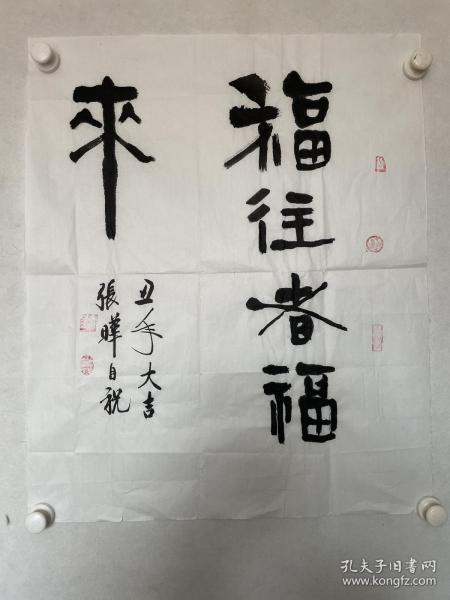 福往者福
來
丑年大吉
張曄自祝
孔夫子旧书网
www.kongfz.com